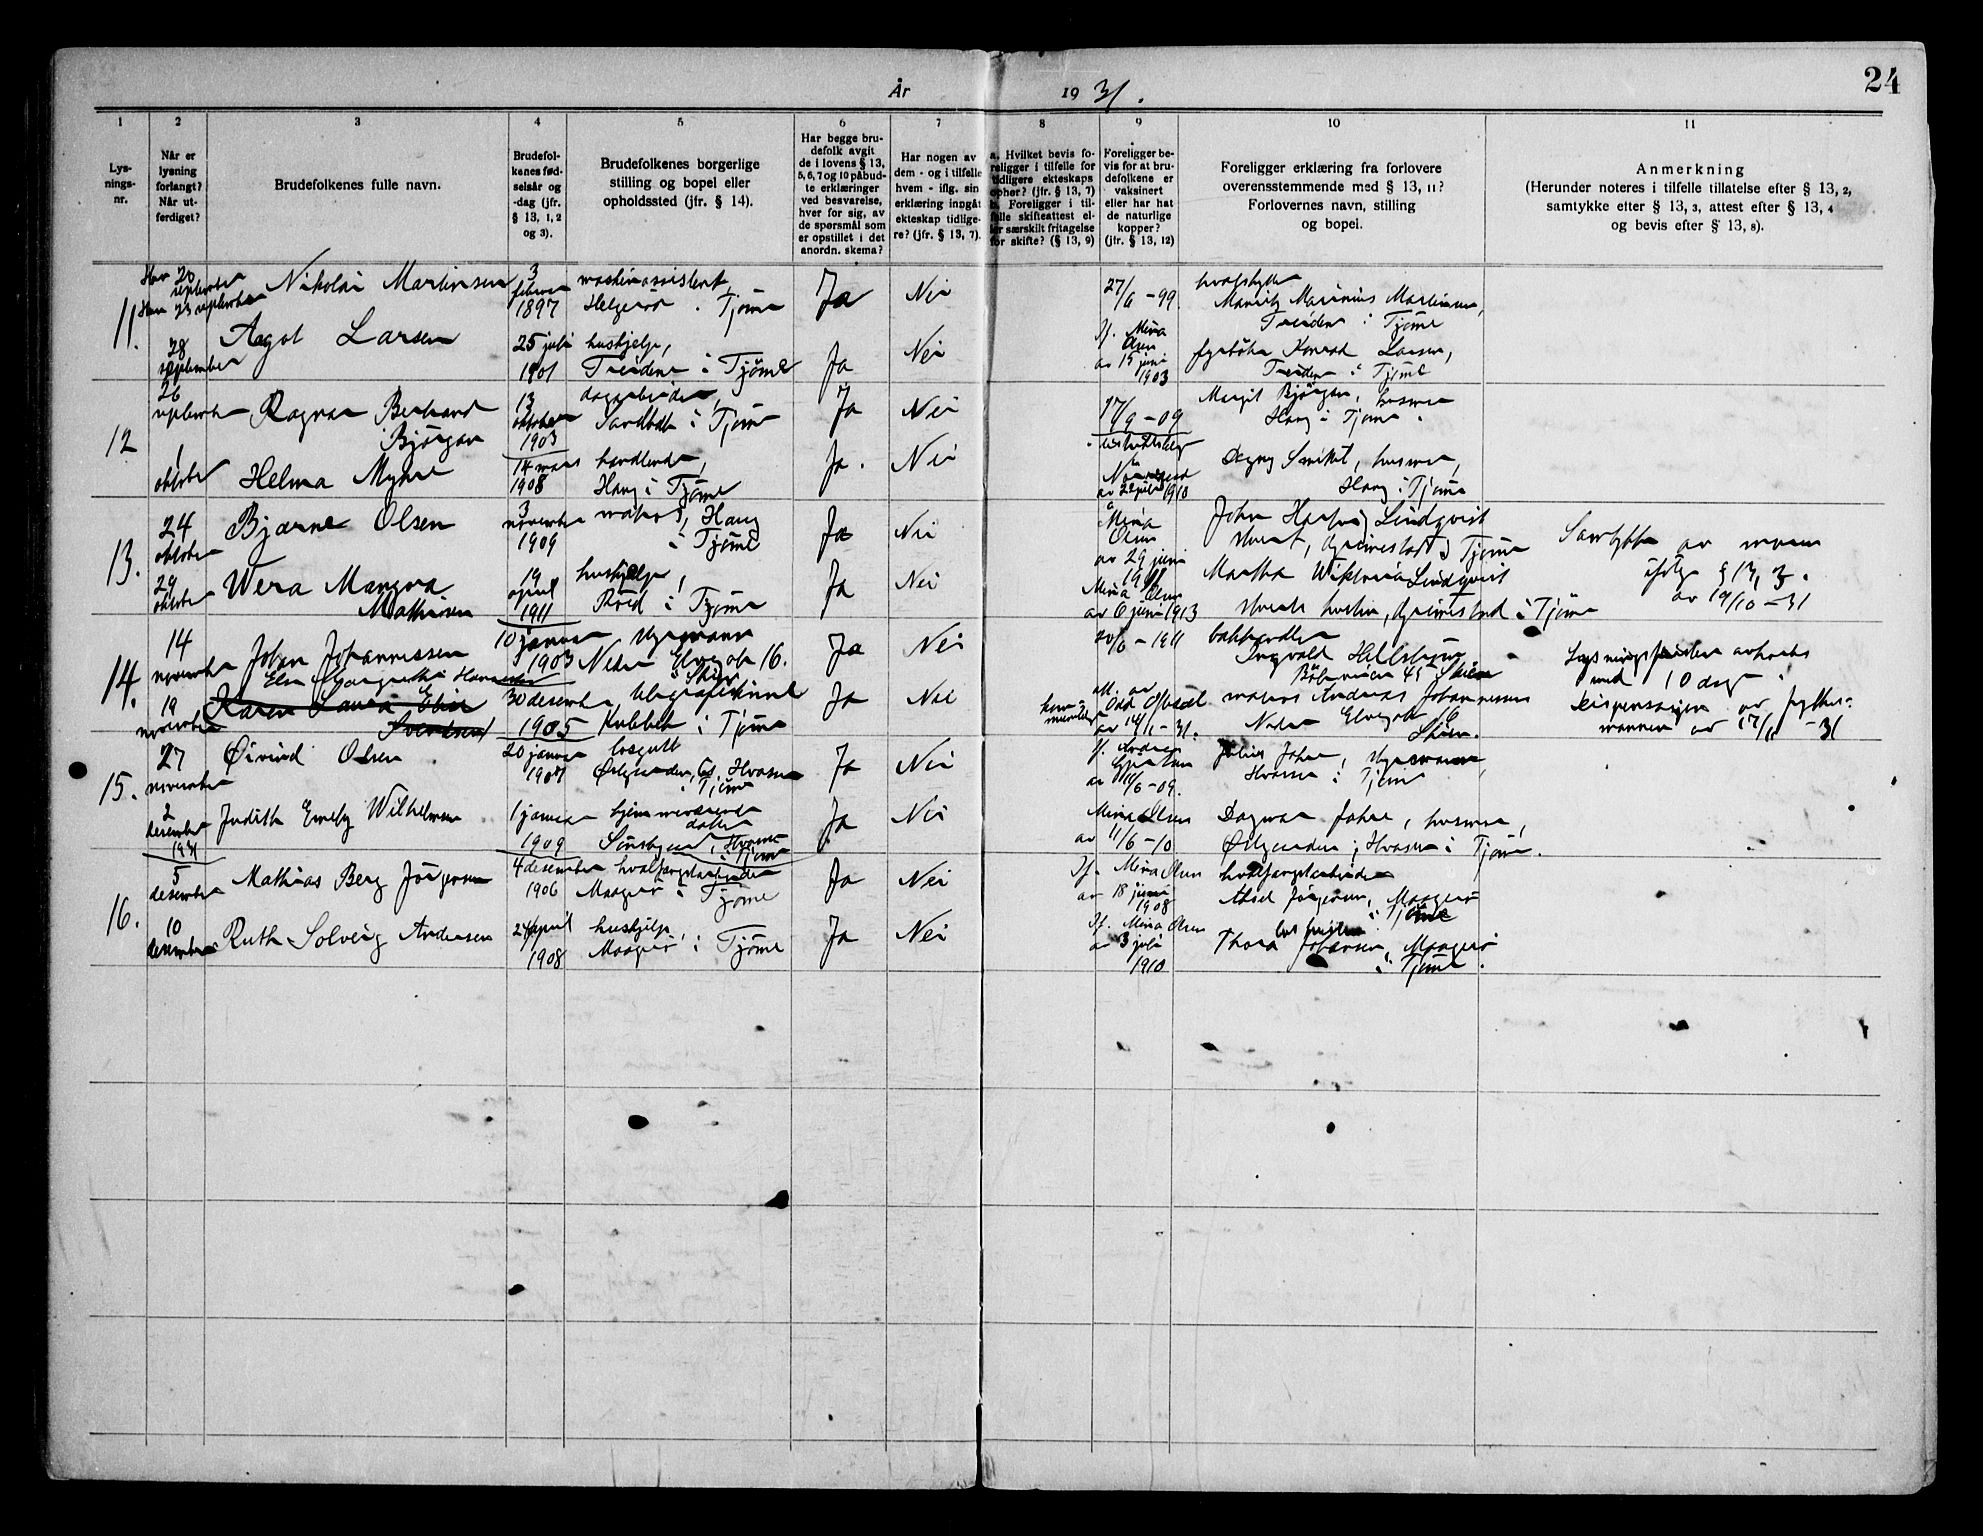 24
År 1931.
1 2 3 4 5 6 7 8 9 10 11
Lys-
nings-
nr.
Når er
lysning
forlangt?
Når ut-
ferdiget?
Brudefolkenes fulle navn.
Brudefol-
kenes fød-
selsår og
-dag (jfr.
§ 13, 1, 2
og 3).
Brudefolkenes borgerlige
stilling og bopel eller
opholdssted (jfr. § 14).
Har begge bru-
defolk avgit
de i lovens § 13,
5, 6, 7 og 10 påbud-
te erklæringer
ved besvarelse,
hver for sig, av
de spørsmål som
er opstillet i det
anordn. skema?
Har nogen av
dem - og i tilfelle
hvem - iflg. sin
erklæring inngåt
ekteskap tidlige-
re? (jfr. § 13, 7).
a. Hvilket bevis fo-
religger i tilfelle for
tidligere ekteskaps
ophør? (jfr. § 13, 7)
b. Foreligger i til-
felle skifteattest el-
ler særskilt fritagelse
for skifte? (§ 13, 9)
Foreligger be-
vis for at bru-
defolkene er
vaksinert
eller har hat
de naturlige
kopper?
(jfr. § 13, 12)
Foreligger erklæring fra forlovere
overensstemmende med § 13, 11?
Forlovernes navn, stilling
og bopel.
Anmerkning
(Herunder noteres i tilfelle tillatelse efter § 13, 2,
samtykke efter § 13, 3, attest efter § 13, 4
og bevis efter § 13, 8).
11.
20 september
23 september
Nikolai Martinsen
3
februar
1897
maskinassistent,
Helgerød i Tjøme
Ja
Nei
27/6 - 99
Marinius Martinsen,
Treidene i Tjøme
28
september
Agot Larsen
25 juli
1901
hushjelp,
Treidene i Tjøme
Ja
Nei
Jf. Mina
Olsen
av 15 juni
1903
fyrbøter Konrad Larsen,
Treidene i Tjøme
12
26
september
Ragnar Bertrand
Bjørgan
13
oktober
1903
Tjøme
Ja
Nei
17/9 - 09
Margit Bjørgan, husmor
Haug i Tjøme.
1
oktober
Helma Myhre
14 mars
1908
handlende,
Haug i Tjøme
Ja.
Nei
1910
Dagny husmor,
Haug i Tjøme
13.
24
oktober
Bjarne Olsen
3
november
1909
matros, Haug
i Tjøme
Ja
Nei
Mina
Olsen
av 29 juni
1911
John Hartvig Lindqvist
Grimestad i Tjøme
Samtykke av moren
ifølge § 13, 3.
av 19/10 - 31
29
oktober
Wera Mangna
Mathisen
19
april
1911
hushjelp,
Rød i Tjøme
Ja
Nei
Mina Olsen
av 6 juni 1913
Martha Wiktoria Lindqvist
Grimestad i Tjøme
14.
14
november
Johan Johannessen
10 januar
1903
styrmann
Nedre Elvegate 16.
Skien
Ja
Nei
20/6 - 1911
Ingvald
45 Skien
Lysningsfristen avkortet
med 10 dager.
Dispensasjon av fylkes-
mannen av 17/11 - 31
19
november
Else Margrethe
Karen Laura Elise
Svendsen
30 desember
1905
i Tjøme
Ja
Nei
att. av
Odd
av 14/11 - 31.
matros Andreas Johannessen
Nedre Elvegate 16
Skien.
15.
27
november
Øivind Olsen
20 januar
1907
losgutt
Østgaarden, Hvasser
i Tjøme
Ja
Nei
av 11/6 - 09.
Julius Johre, styrmann,
Hvasser i Tjøme
2
desember
1931
Judith Emely Wilhelmsen
1 januar
1909
hjemmeværende
datter
Hvasser
i Tjøme
Ja
Nei
Mina Olsen
av 11/6 - 10
Dagmar Johre, husmor,
Østgaarden, Hvasser i Tjøme.
16.
5
desember
Mathias Berg Jørgensen
4 desember
1906
hvalfangstarbeider
Maagerø i Tjøme
Ja
Nei
Jf. Mina Olsen
av 18 juni
1908
hvalfangstarbeider
Aksel Jørgensen, Maagerø
i Tjøme
10
desember
Ruth Solveig Andersen
24 april
1908
hushjelp,
Maagerø i Tjøme
Ja
Nei
Jf. Mina Olsen
av 3 juli
1910
Thora Johansen, Maagerø
i Tjøme.